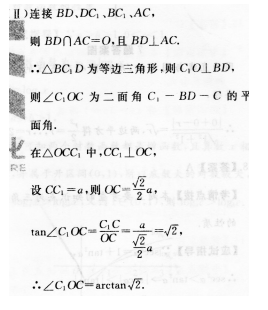 Ⅱ)连接 BD、DC₁、BC₁、AC,
则 BD∩AC=O,且 BD⊥AC.
∴△BC₁D 为等边三角形,则 C₁O⊥BD,
则∠C₁OC 为二面角 C₁-BD-C 的平
面角.
在△OCC₁ 中,CC₁⊥OC,
设 CC₁=a,则 OC=√2/2 a,
tan∠C₁OC=C₁C/OC=a/(√2/2 a)=√2,
∴∠C₁OC=arctan√2.
RE